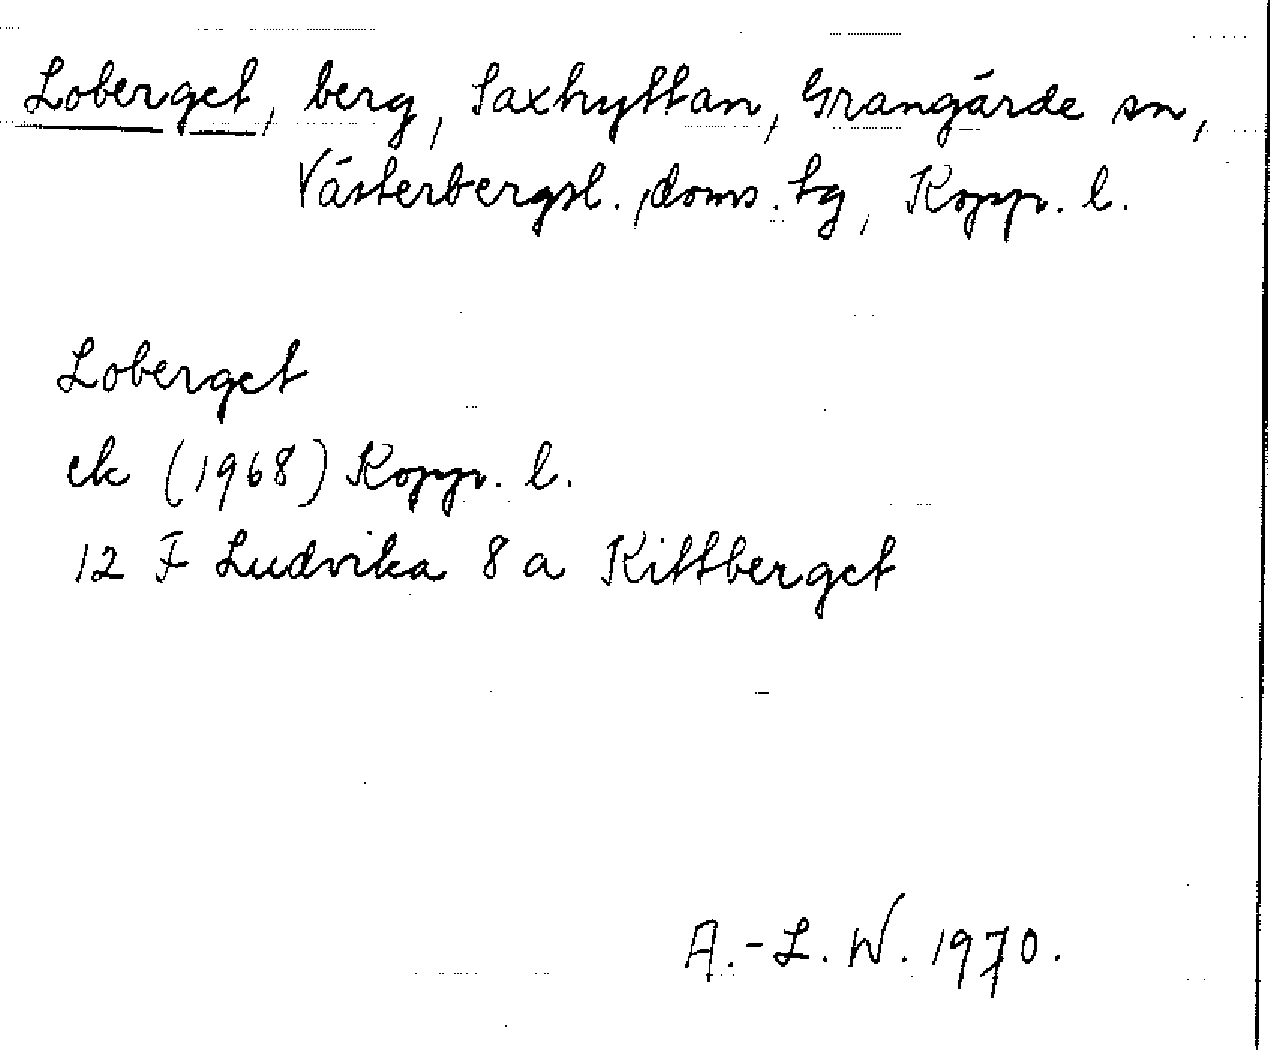 Loberget, berg, Saxhyttan, Grangärde sn,
Västerbergsl. doms. tg, Kopp. l.
Loberget
ek (1968) Kopp. l.
12 F Ludvika 8 a Kittberget
A.-L. W. 1970.